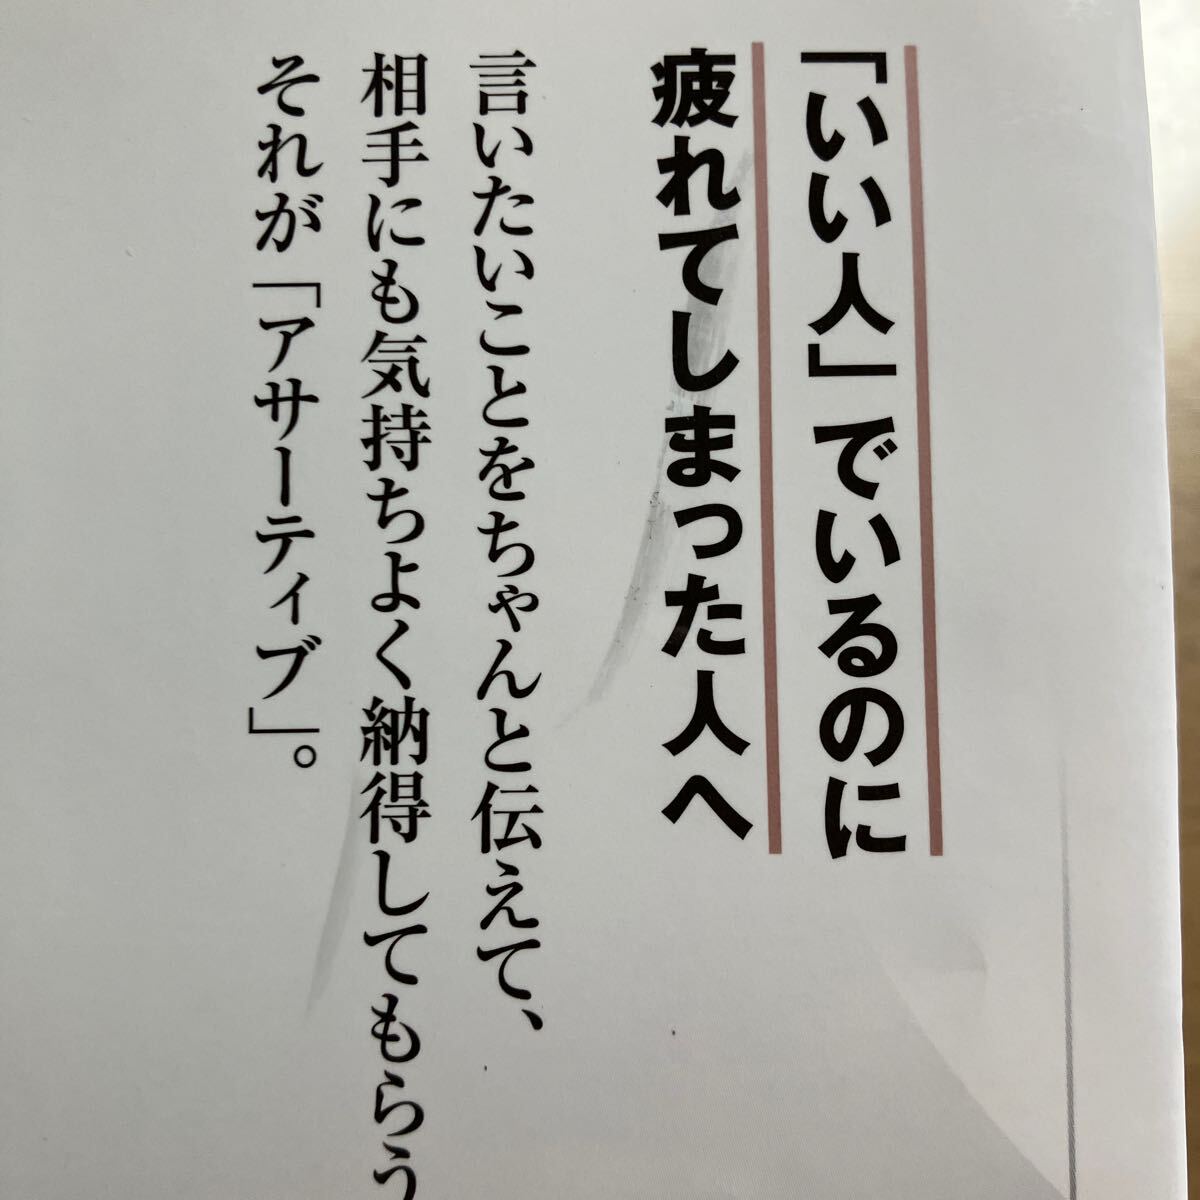 「いい人」でいるのに
疲れてしまった人へ
言いたいことをちゃんと伝えて、
相手にも気持ちよく納得してもらう
それが「アサーティブ」。